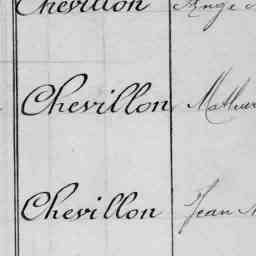 Chevillon Ange
Chevillon
Chevillon Jean